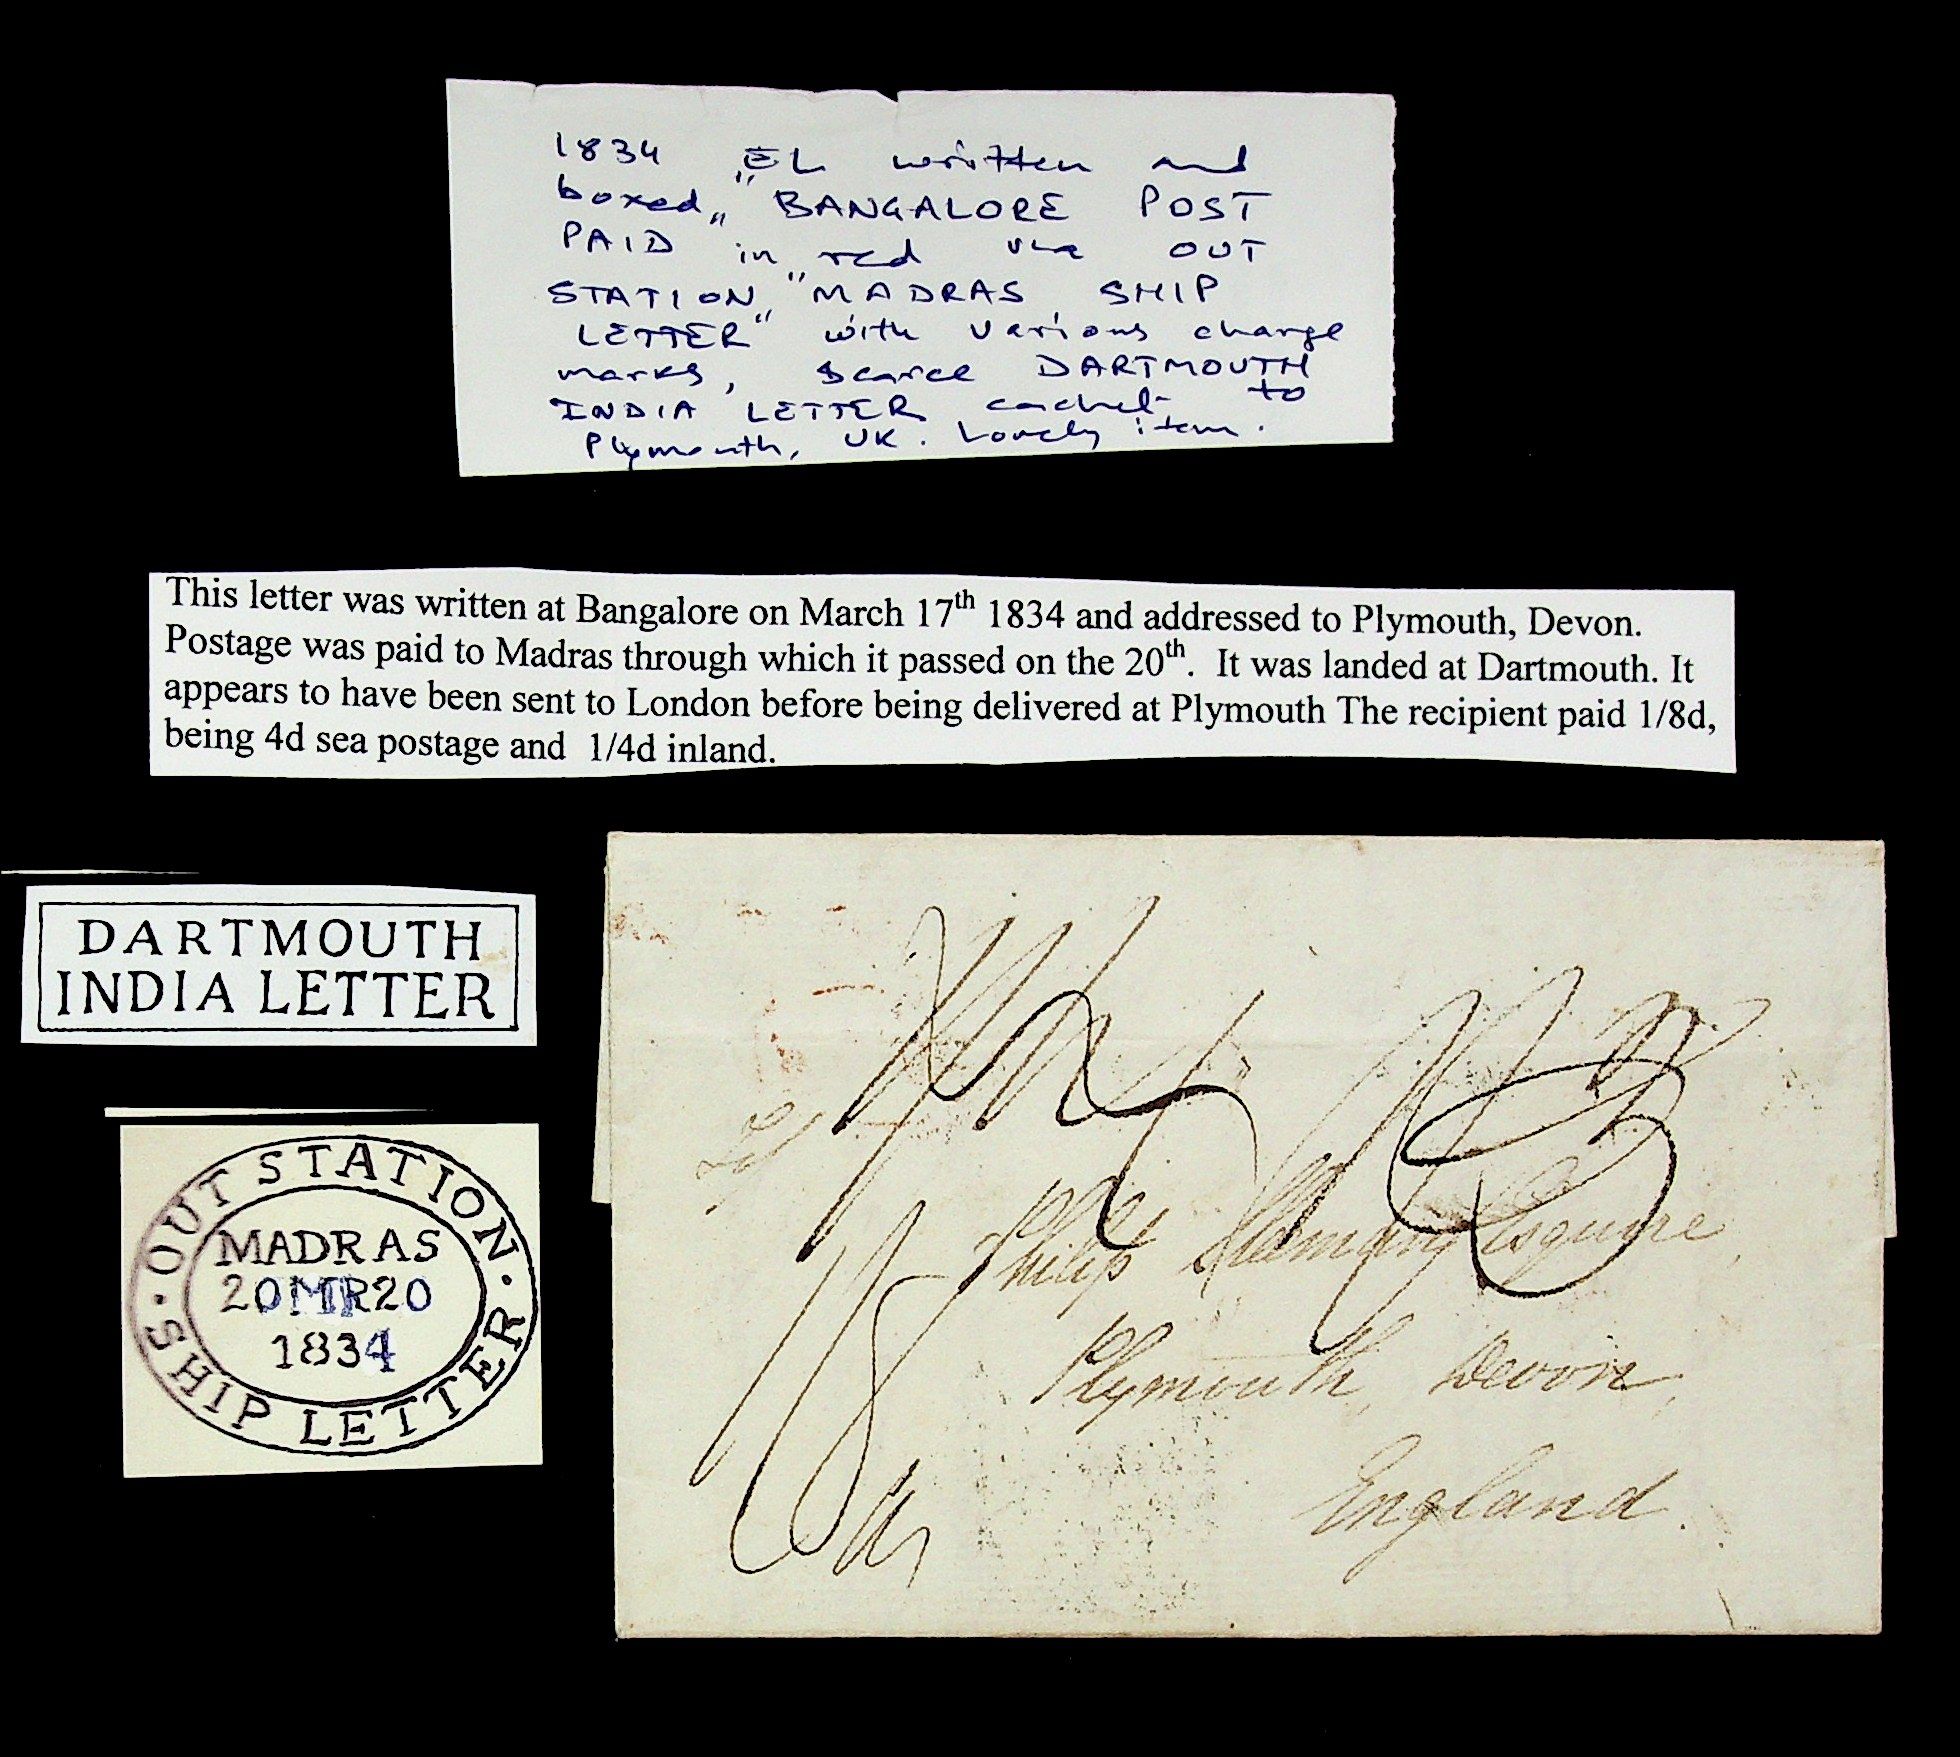 1834 "EL written and
boxed "BANGALORE POST
PAID" in red via OUT
STATION "MADRAS SHIP
LETTER" with various charge
marks, scarce DARTMOUTH
INDIA LETTER cachet to
Plymouth, UK. Lovely item.
This letter was written at Bangalore on March 17th 1834 and addressed to Plymouth, Devon.
Postage was paid to Madras through which it passed on the 20th. It was landed at Dartmouth. It
appears to have been sent to London before being delivered at Plymouth The recipient paid 1/8d,
being 4d sea postage and 1/4d inland.
DARTMOUTH
INDIA LETTER
OUT STATION
MADRAS
20MR20
1834
SHIP LETTER
Philip Esquire,
Plymouth, Devon,
England.